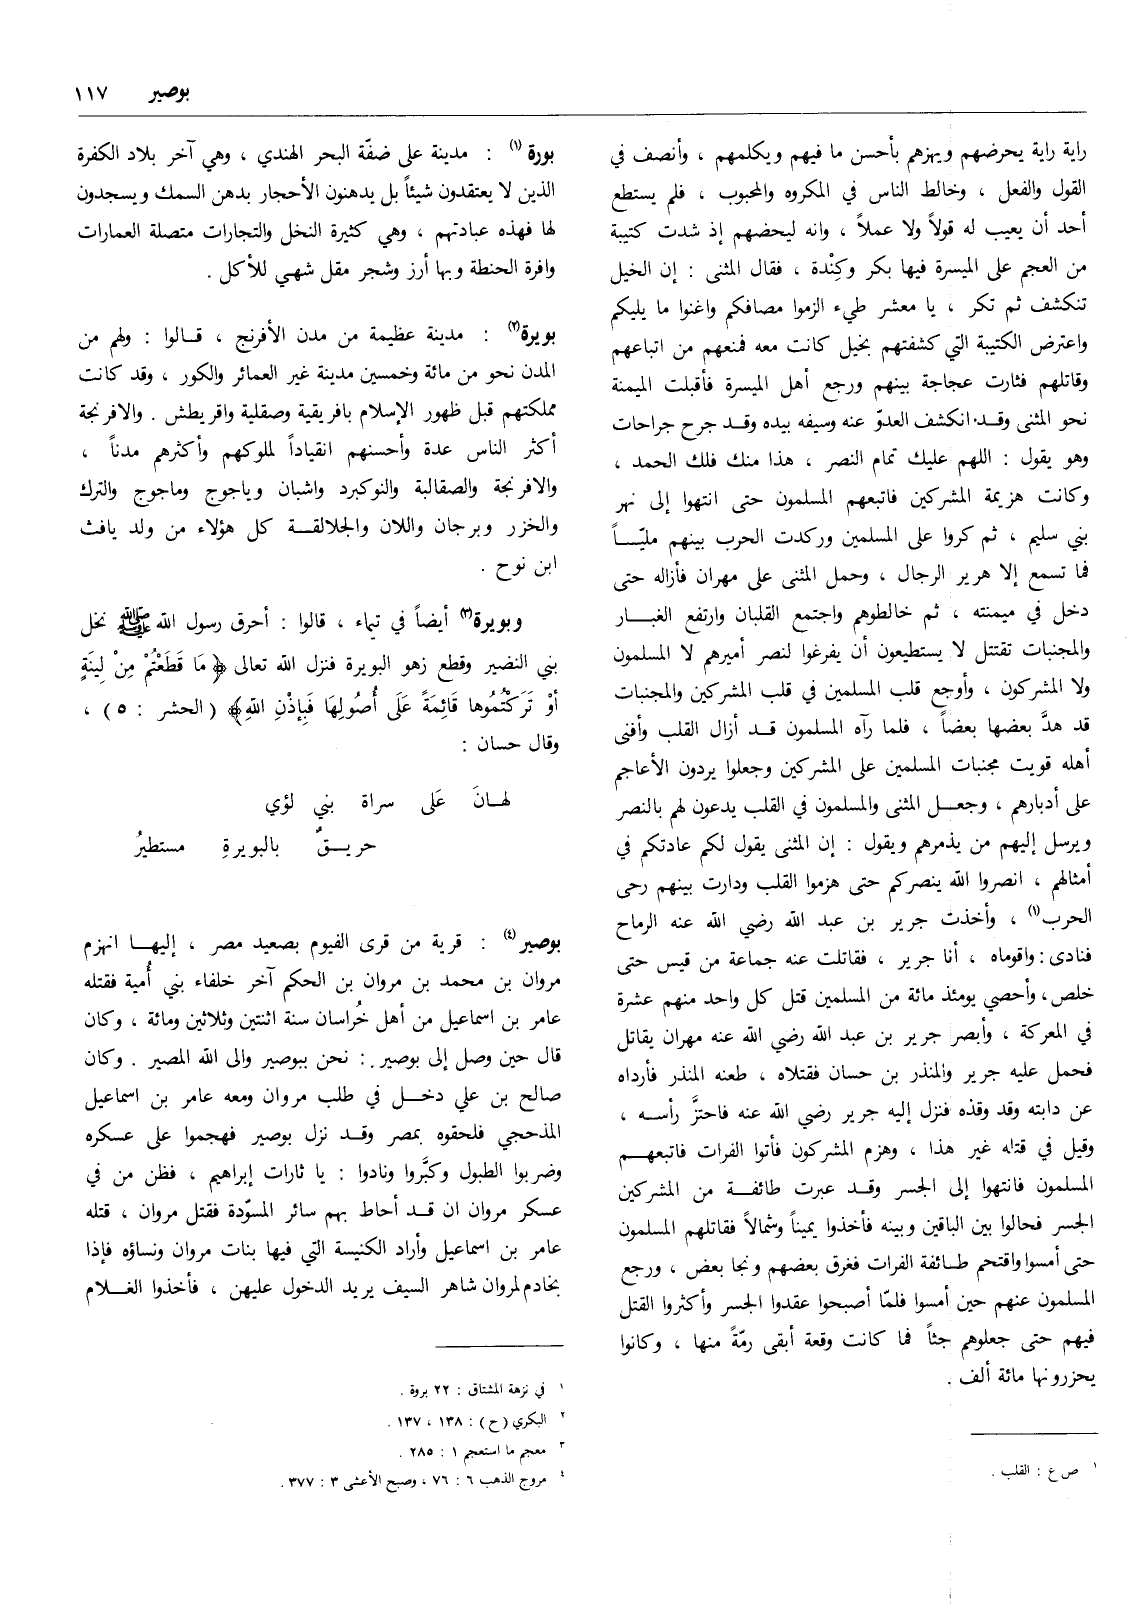 بوصير ١١٧
راية راية يحرضهم ويهزهم بأحسن ما فيهم ويكلمهم ، وأنصف في
القول والفعل ، وخالط الناس في المكروه والمحبوب ، فلم يستطع
أحد أن يعيب له قولاً ولا عملاً ، وانه ليحضهم إذ شدت كتيبة
من العجم على الميسرة فيها بكر وكِنْدة ، فقال المثنى : إن الخيل
تنكشف ثم تكر ، يا معشر طيء الزموا مصافكم واغنوا ما يليكم
واعترض الكتيبة التي كشفتهم بخيل كانت معه فمنعهم من اتباعهم
وقاتلهم فثارت عجاجة بينهم ورجع أهل الميسرة فأقبلت الميمنة
نحو المثنى وقد انكشف العدوّ عنه وسيفه بيده وقد جرح جراحات
وهو يقول : اللهم عليك تمام النصر ، هذا منك فلك الحمد ،
وكانت هزيمة المشركين فاتبعهم المسلمون حتى انتهوا إلى نهر
بني سليم ، ثم كروا على المسلمين وركدت الحرب بينهم مليّاً
فما تسمع إلا هرير الرجال ، وحمل المثنى على مهران فأزاله حتى
دخل في ميمنته ، ثم خالطوهم واجتمع القلبان وارتفع الغبار
والمجنبات تقتتل لا يستطيعون أن يفرغوا لنصر أميرهم لا المسلمون
ولا المشركون ، وأوجع قلب المسلمين في قلب المشركين والمجنبات
قد هدَّ بعضها بعضاً ، فلما رآه المسلمون قد أزال القلب وأفنى
أهله قويت مجنبات المسلمين على المشركين وجعلوا يردون الأعاجم
على أدبارهم ، وجعل المثنى والمسلمون في القلب يدعون لهم بالنصر
ويرسل إليهم من يذمرهم ويقول : إن المثنى يقول لكم عادتكم في
أمثالهم ، انصروا الله ينصركم حتى هزموا القلب ودارت بينهم رحى
الحرب(١) ، وأخذت جرير بن عبد الله رضي الله عنه الرماح
فنادى : واقوماه ، أنا جرير ، فقاتلت عنه جماعة من قيس حتى
خلص، وأحصي يومئذ مائة من المسلمين قتل كل واحد منهم عشرة
في المعركة ، وأبصر جرير بن عبد الله رضي الله عنه مهران يقاتل
فحمل عليه جرير والمنذر بن حسان فقتلاه ، طعنه المنذر فأرداه
عن دابته وقد وقذه فنزل إليه جرير رضي الله عنه فاحتزَّ رأسه ،
وقيل في قتله غير هذا ، وهزم المشركون فأتوا الفرات فاتبعهم
المسلمون فانتهوا إلى الجسر وقد عبرت طائفة من المشركين
الجسر فحالوا بين الباقين وبينه فأخذوا يميناً وشمالاً فقاتلهم المسلمون
حتى أمسوا واقتحم طائفة الفرات فغرق بعضهم ونجا بعض ، ورجع
المسلمون عنهم حين أمسوا فلمّا أصبحوا عقدوا الجسر وأكثروا القتل
فيهم حتى جعلوهم جثاً فما كانت وقعة أبقى رمّةً منها ، وكانوا
يحزرونها مائة ألف .
١ ص ع : القلب .
بورة(١) : مدينة على ضفّة البحر الهندي ، وهي آخر بلاد الكفرة
الذين لا يعتقدون شيئاً بل يدهنون الأحجار بدهن السمك ويسجدون
لها فهذه عبادتهم ، وهي كثيرة النخل والتجارات متصلة العمارات
وافرة الحنطة وبها أرز وشجر مقل شهي للأكل .
بويرة(٢) : مدينة عظيمة من مدن الأفرنج ، قالوا : ولهم من
المدن نحو من مائة وخمسين مدينة غير العمائر والكور ، وقد كانت
مملكتهم قبل ظهور الإسلام بافريقية وصقلية واقريطش . والافرنجة
أكثر الناس عدة وأحسنهم انقياداً لملوكهم وأكثرهم مدناً ،
والافرنجة والصقالبة والنوكبرد واشبان وياجوج وماجوج والترك
والخزر وبرجان واللان والجلالقة كل هؤلاء من ولد يافث
ابن نوح .
وبويرة(٣) أيضاً في تيماء ، قالوا : أحرق رسول الله ﷺ نخل
بني النضير وقطع زهو البويرة فنزل الله تعالى ﴿ مَا قَطَعْتُمْ مِنْ لِينَةٍ
أوْ تَرَكْتُمُوها قَائِمَةً عَلَى أُصُولِهَا فَبِإذْنِ اللهِ﴾ (الحشر : ٥) ،
وقال حسان :
لهانَ عَلى سراة بني لؤي
حريقٌ بالبويرةِ مستطيرُ
بوصير(٤) : قرية من قرى الفيوم بصعيد مصر ، إليها انهزم
مروان بن محمد بن مروان بن الحكم آخر خلفاء بني أُمية فقتله
عامر بن اسماعيل من أهل خُراسان سنة اثنتين وثلاثين ومائة ، وكان
قال حين وصل إلى بوصير : نحن ببوصير والى الله المصير . وكان
صالح بن علي دخل في طلب مروان ومعه عامر بن اسماعيل
المذحجي فلحقوه بمصر وقد نزل بوصير فهجموا على عسكره
وضربوا الطبول وكبَّروا ونادوا : يا ثارات إبراهيم ، فظن من في
عسكر مروان ان قد أحاط بهم سائر المسوّدة فقتل مروان ، قتله
عامر بن اسماعيل وأراد الكنيسة التي فيها بنات مروان ونساؤه فإذا
بخادم لمروان شاهر السيف يريد الدخول عليهن ، فأخذوا الغلام
١ في نزهة المشتاق : ٢٢ بروة .
٢ البكري (ح) : ١٣٨ ، ١٣٧ .
٣ معجم ما استعجم ١ : ٢٨٥ .
٤ مروج الذهب ٦ : ٧٦ ، وصبح الأعشى ٣ : ٣٧٧ .